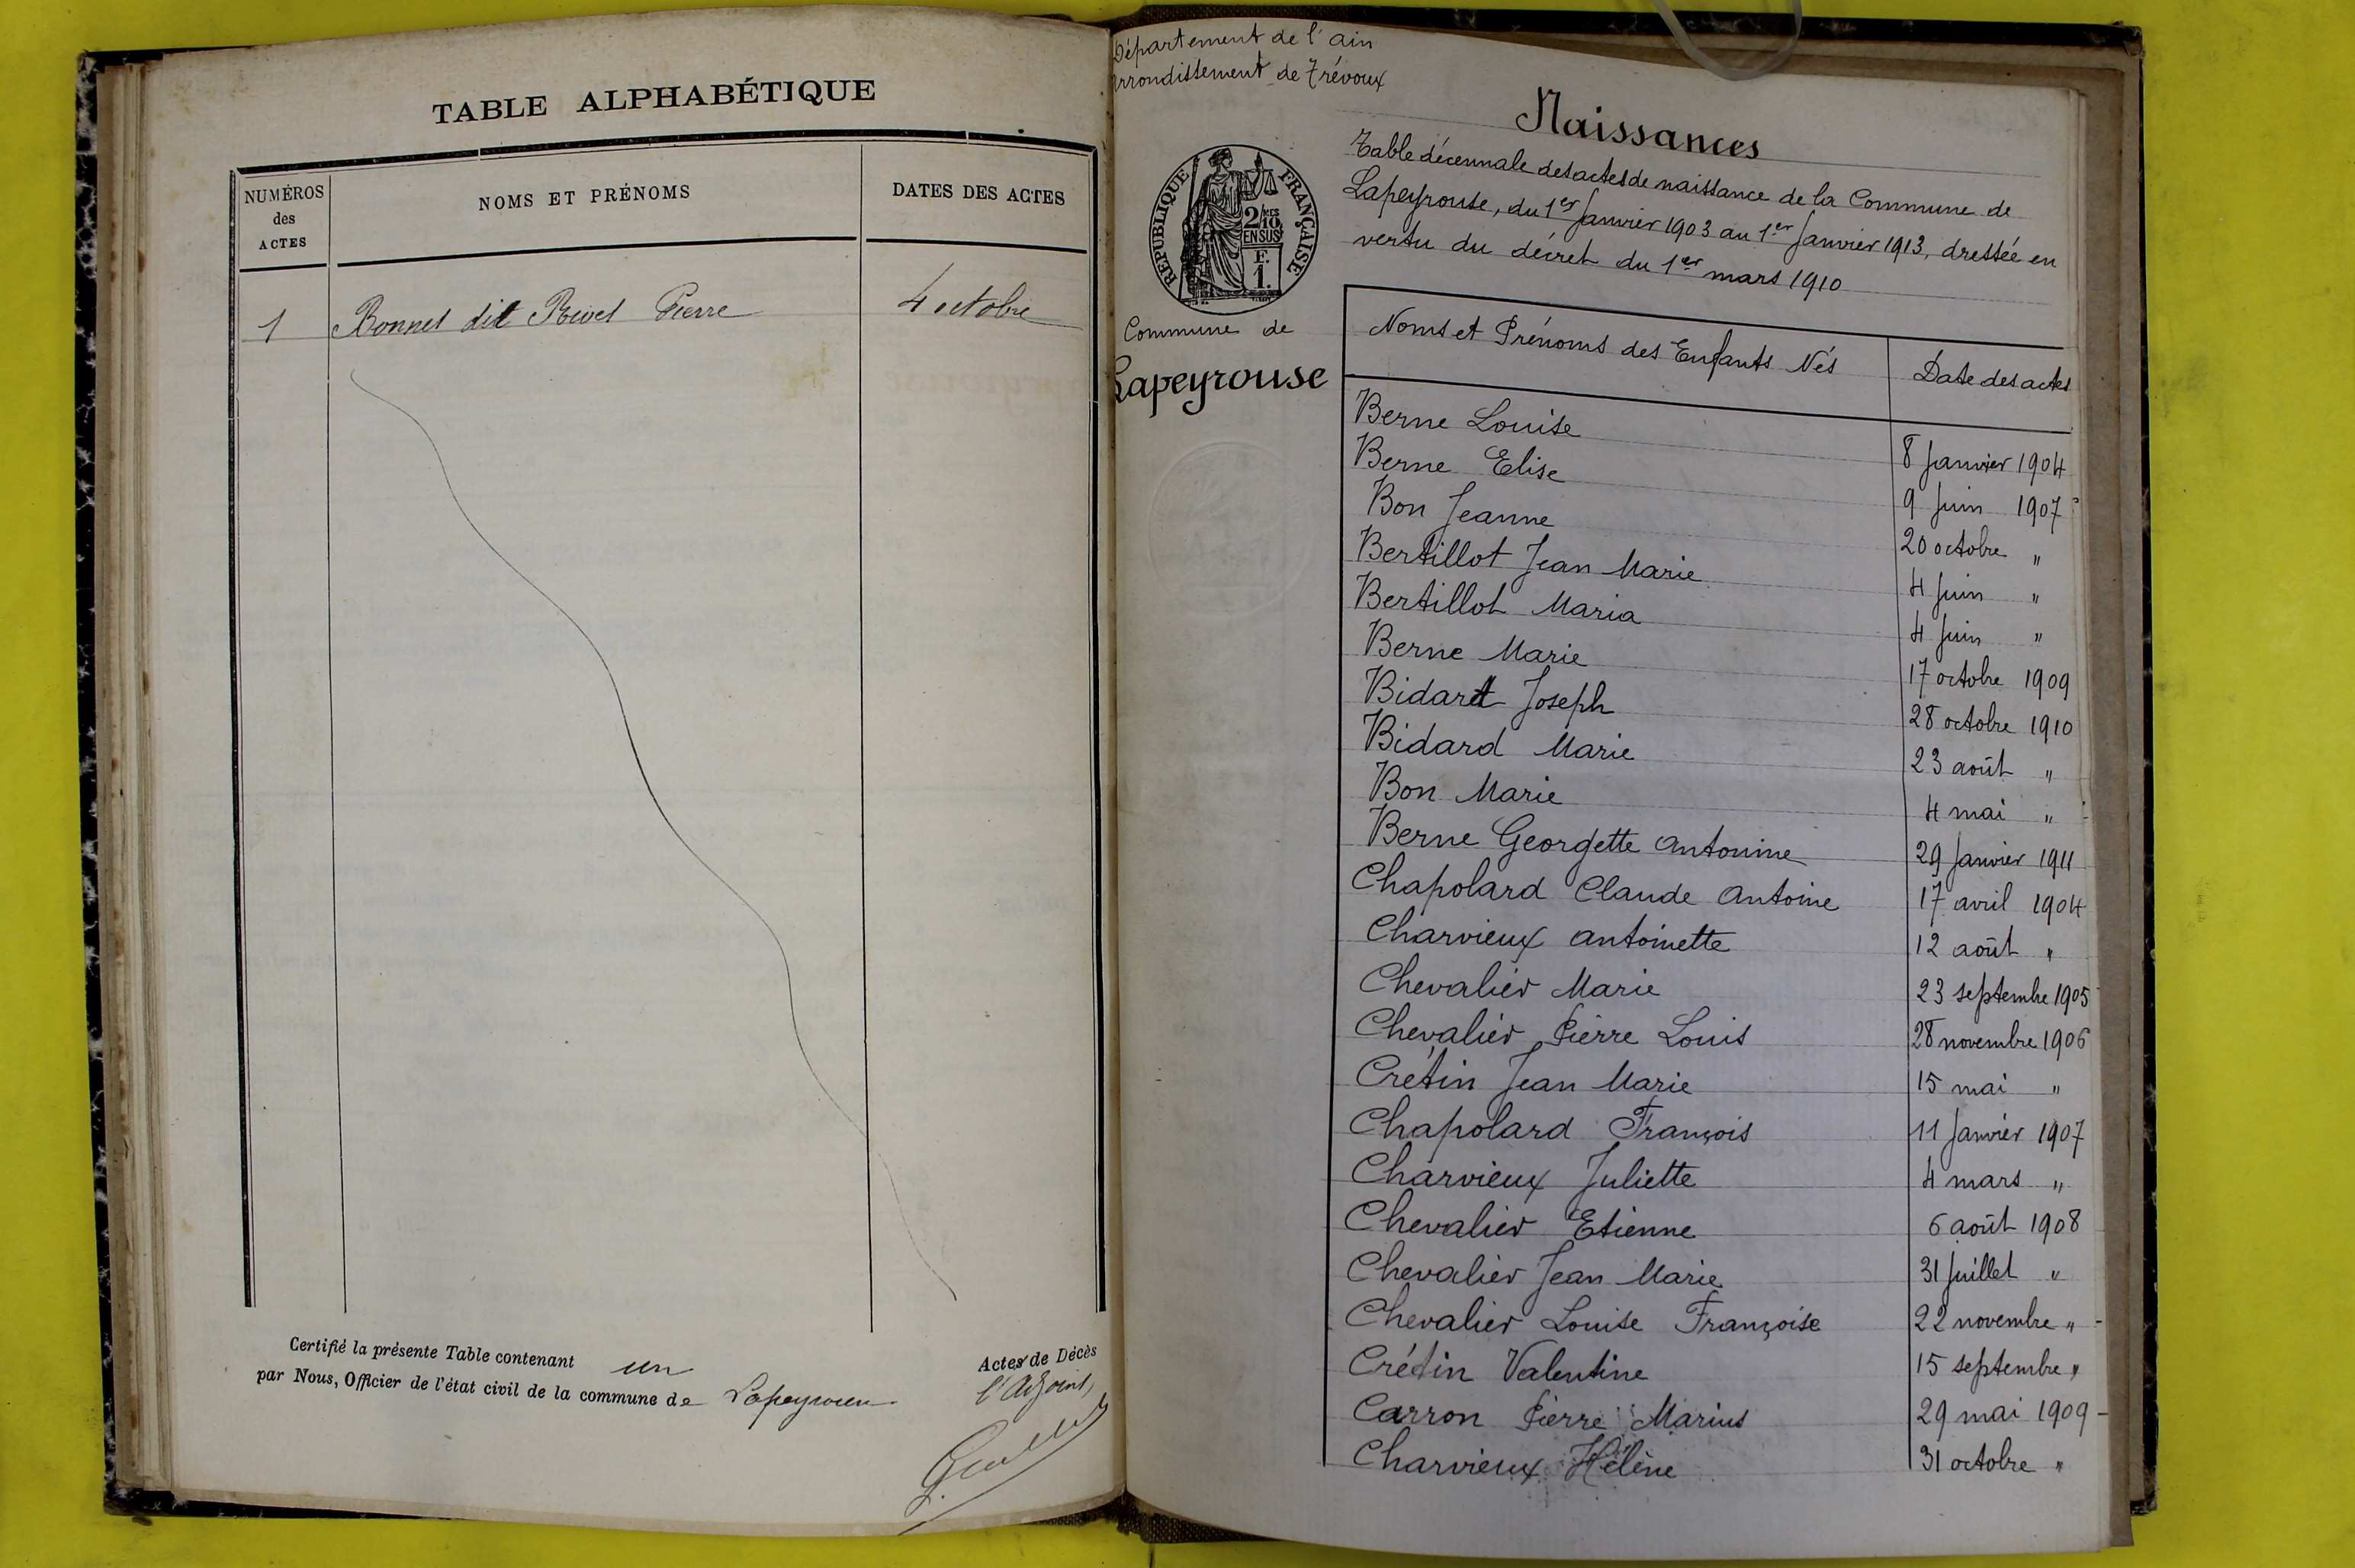 TABLE ALPHABÉTIQUE
NUMÉROS des ACTES NOMS ET PRÉNOMS DATES DES ACTES
1 Bonnet dit Revet Pierre 4 octobre
Certifié la présente Table contenant un Actes de Décès
par Nous, Officier de l'état civil de la commune de Lapeyrouse l'Adjoint,
Département de l'ain
arrondissement de Trévoux
RÉPUBLIQUE FRANÇAISE
2/10 MES
EN SUS
F.
1.
Commune de
Lapeyrouse
Naissances
Table décennale des actes de naissance de la Commune de
Lapeyrouse, du 1er Janvier 1903 au 1er Janvier 1913, dressée en
vertu du décret du 1er mars 1910
Noms et Prénoms des Enfants Nés Date des actes
Berne Louise 8 Janvier 1904
Berne Elise 9 Juin 1907
Bon Jeanne 20 octobre "
Bertillot Jean Marie 4 Juin "
Bertillot Maria 4 Juin "
Berne Marie 17 octobre 1909
Bidard Joseph 28 octobre 1910
Bidard Marie 23 août "
Bon Marie 4 mai "
Berne Georgette antonine 29 Janvier 1911
Chapolard Claude antoine 17 avril 1904
Charvieux antoinette 12 août "
Chevalier Marie 23 septembre 1905
Chevalier Pierre Louis 28 novembre 1906
Crétin Jean Marie 15 mai "
Chapolard François 11 Janvier 1907
Charvieux Juliette 4 mars "
Chevalier Etienne 6 août 1908
Chevalier Jean Marie 31 Juillet "
Chevalier Louise Françoise 22 novembre "
Crétin Valentine 15 septembre "
Carron Pierre Marius 29 mai 1909
Charvieux Hélène 31 octobre "